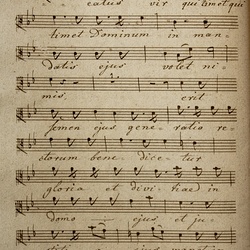 catus vir qui timet qui
timet Dominum in man-
datis ejus volet ni-
mis. erit
semen ejus gene-ratio re-
ctorum bene-dice-tur
gloria et divi-tiae in
domo ejus, et ju-